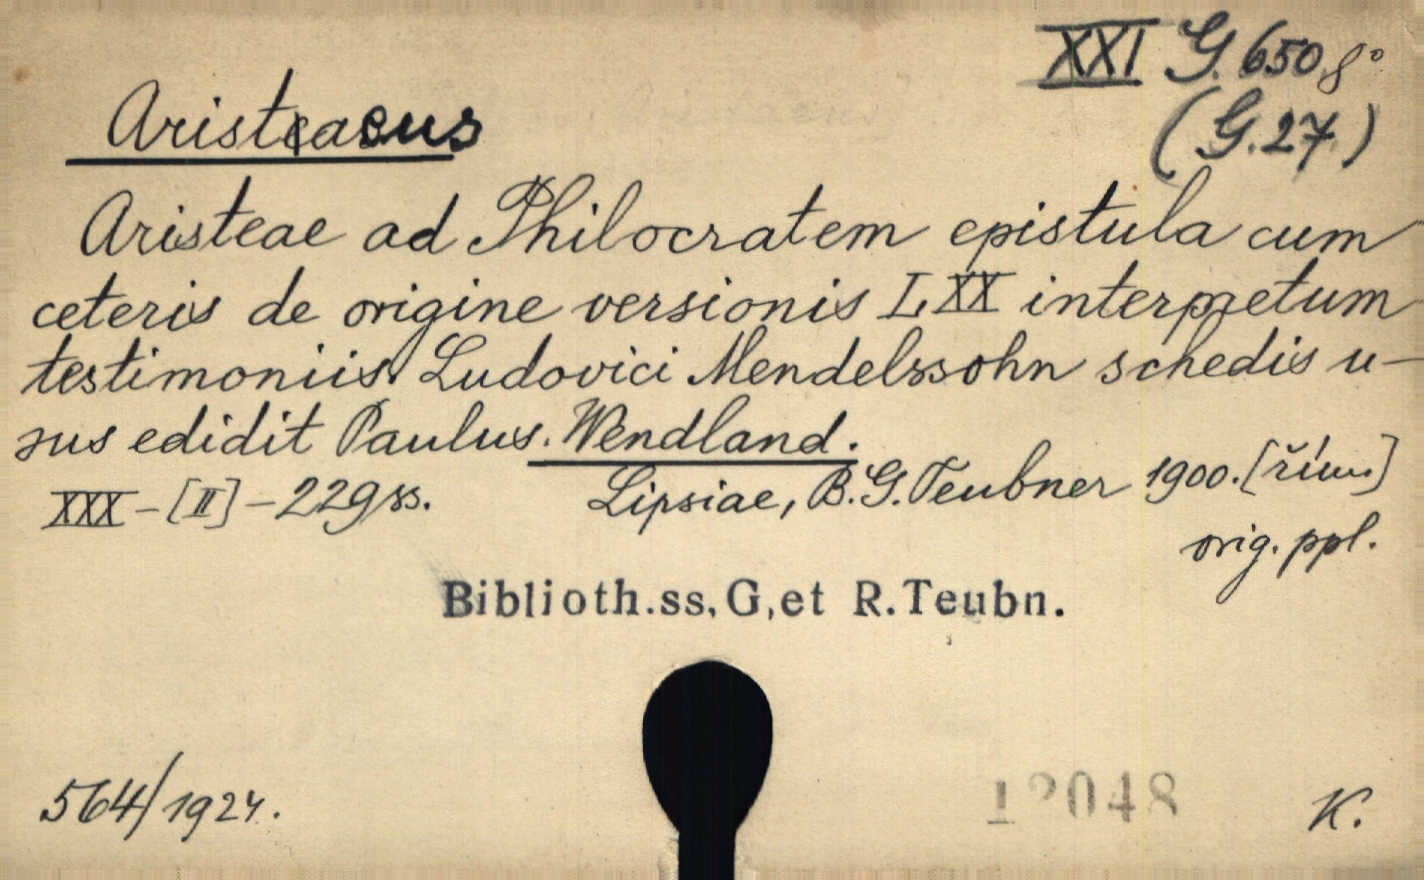 XXI G. 650 8°
(G. 27.)
Aristaeus
Aristeae ad Philocratem epistula cum
ceteris de origine versionis LXX interpretum
testimoniis. Ludovici Mendelssohn schedis u-
sus edidit Paulus. Wendland.
XXX-[II]-229 ss. Lipsiae, B. G. Teubner 1900. [řím.]
orig. ppl.
Biblioth.ss,G,et R.Teubn.
564/1924.
12048
K.